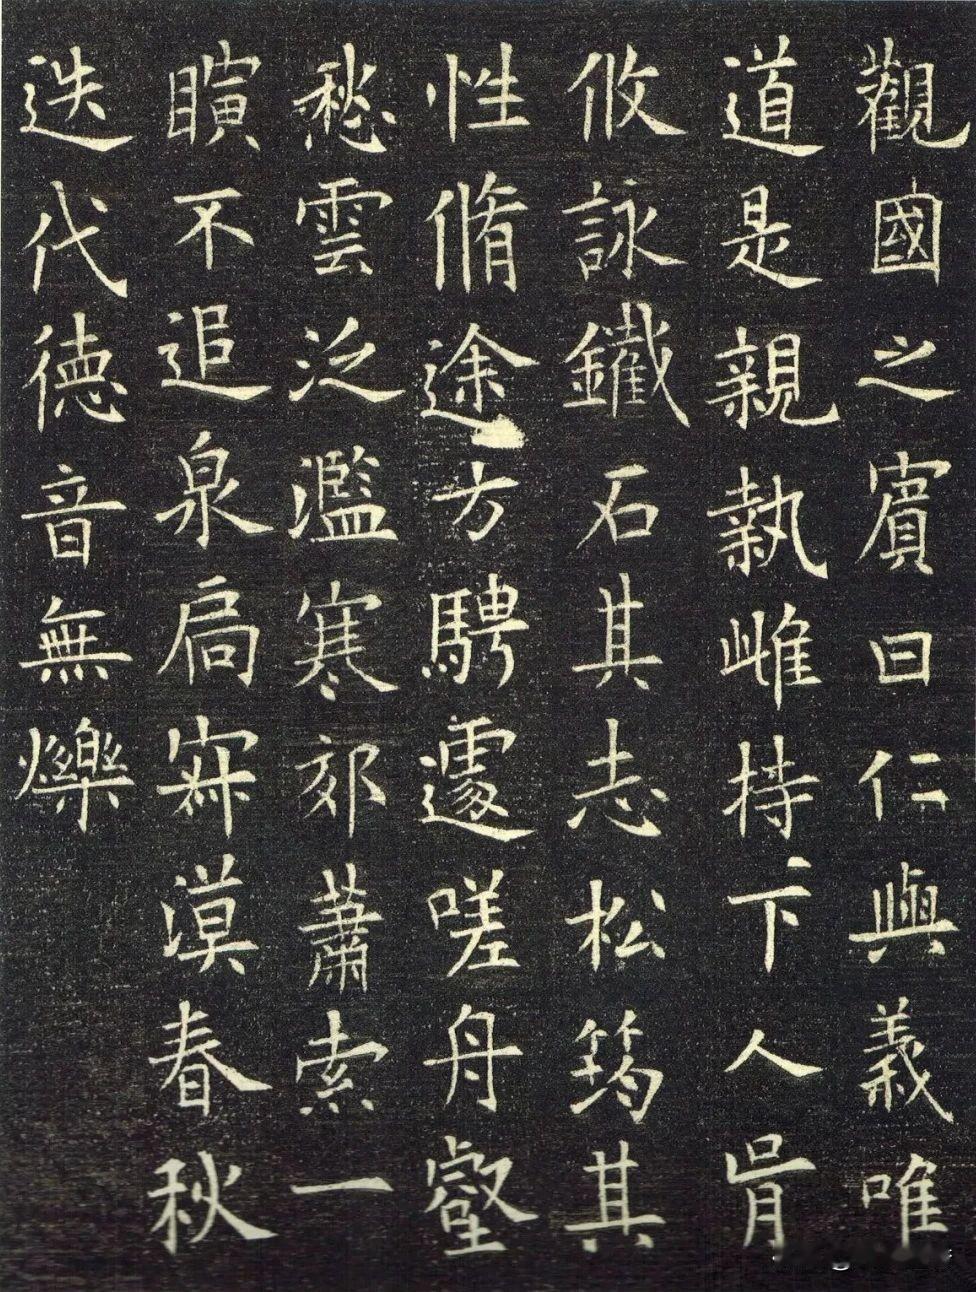 觀國之賓曰仁與義唯
道是親執雌持下人肯
攸詠鐵石其志松筠其
性脩途方騁遽嗟舟壑
愁雲泛濫寒郊蕭索一
瞚不追泉扃寂漠春秋
迭代德音無爍